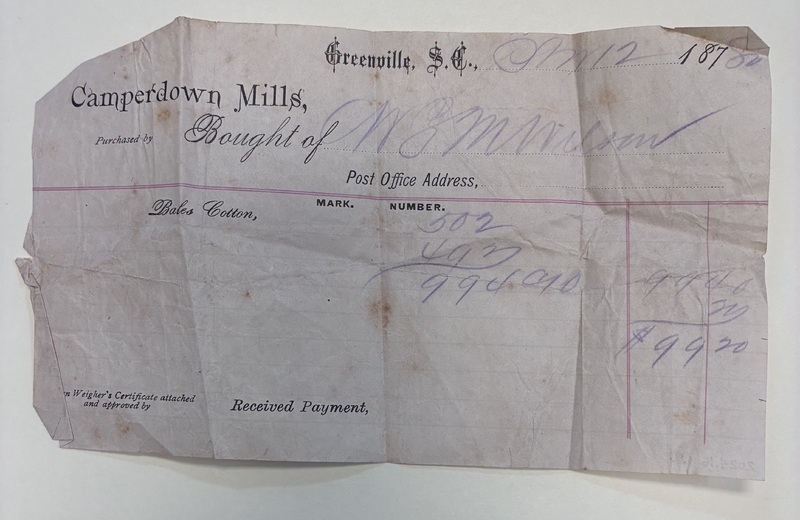 Greenville, S.C., 12 1880
Camperdown Mills,
Purchased by Bought of W B M Wilson
Post Office Address,
Bales Cotton, MARK. NUMBER.
502
492
994 @ 10 99 40
20
$ 99 20
Weigher's Certificate attached
and approved by
Received Payment,